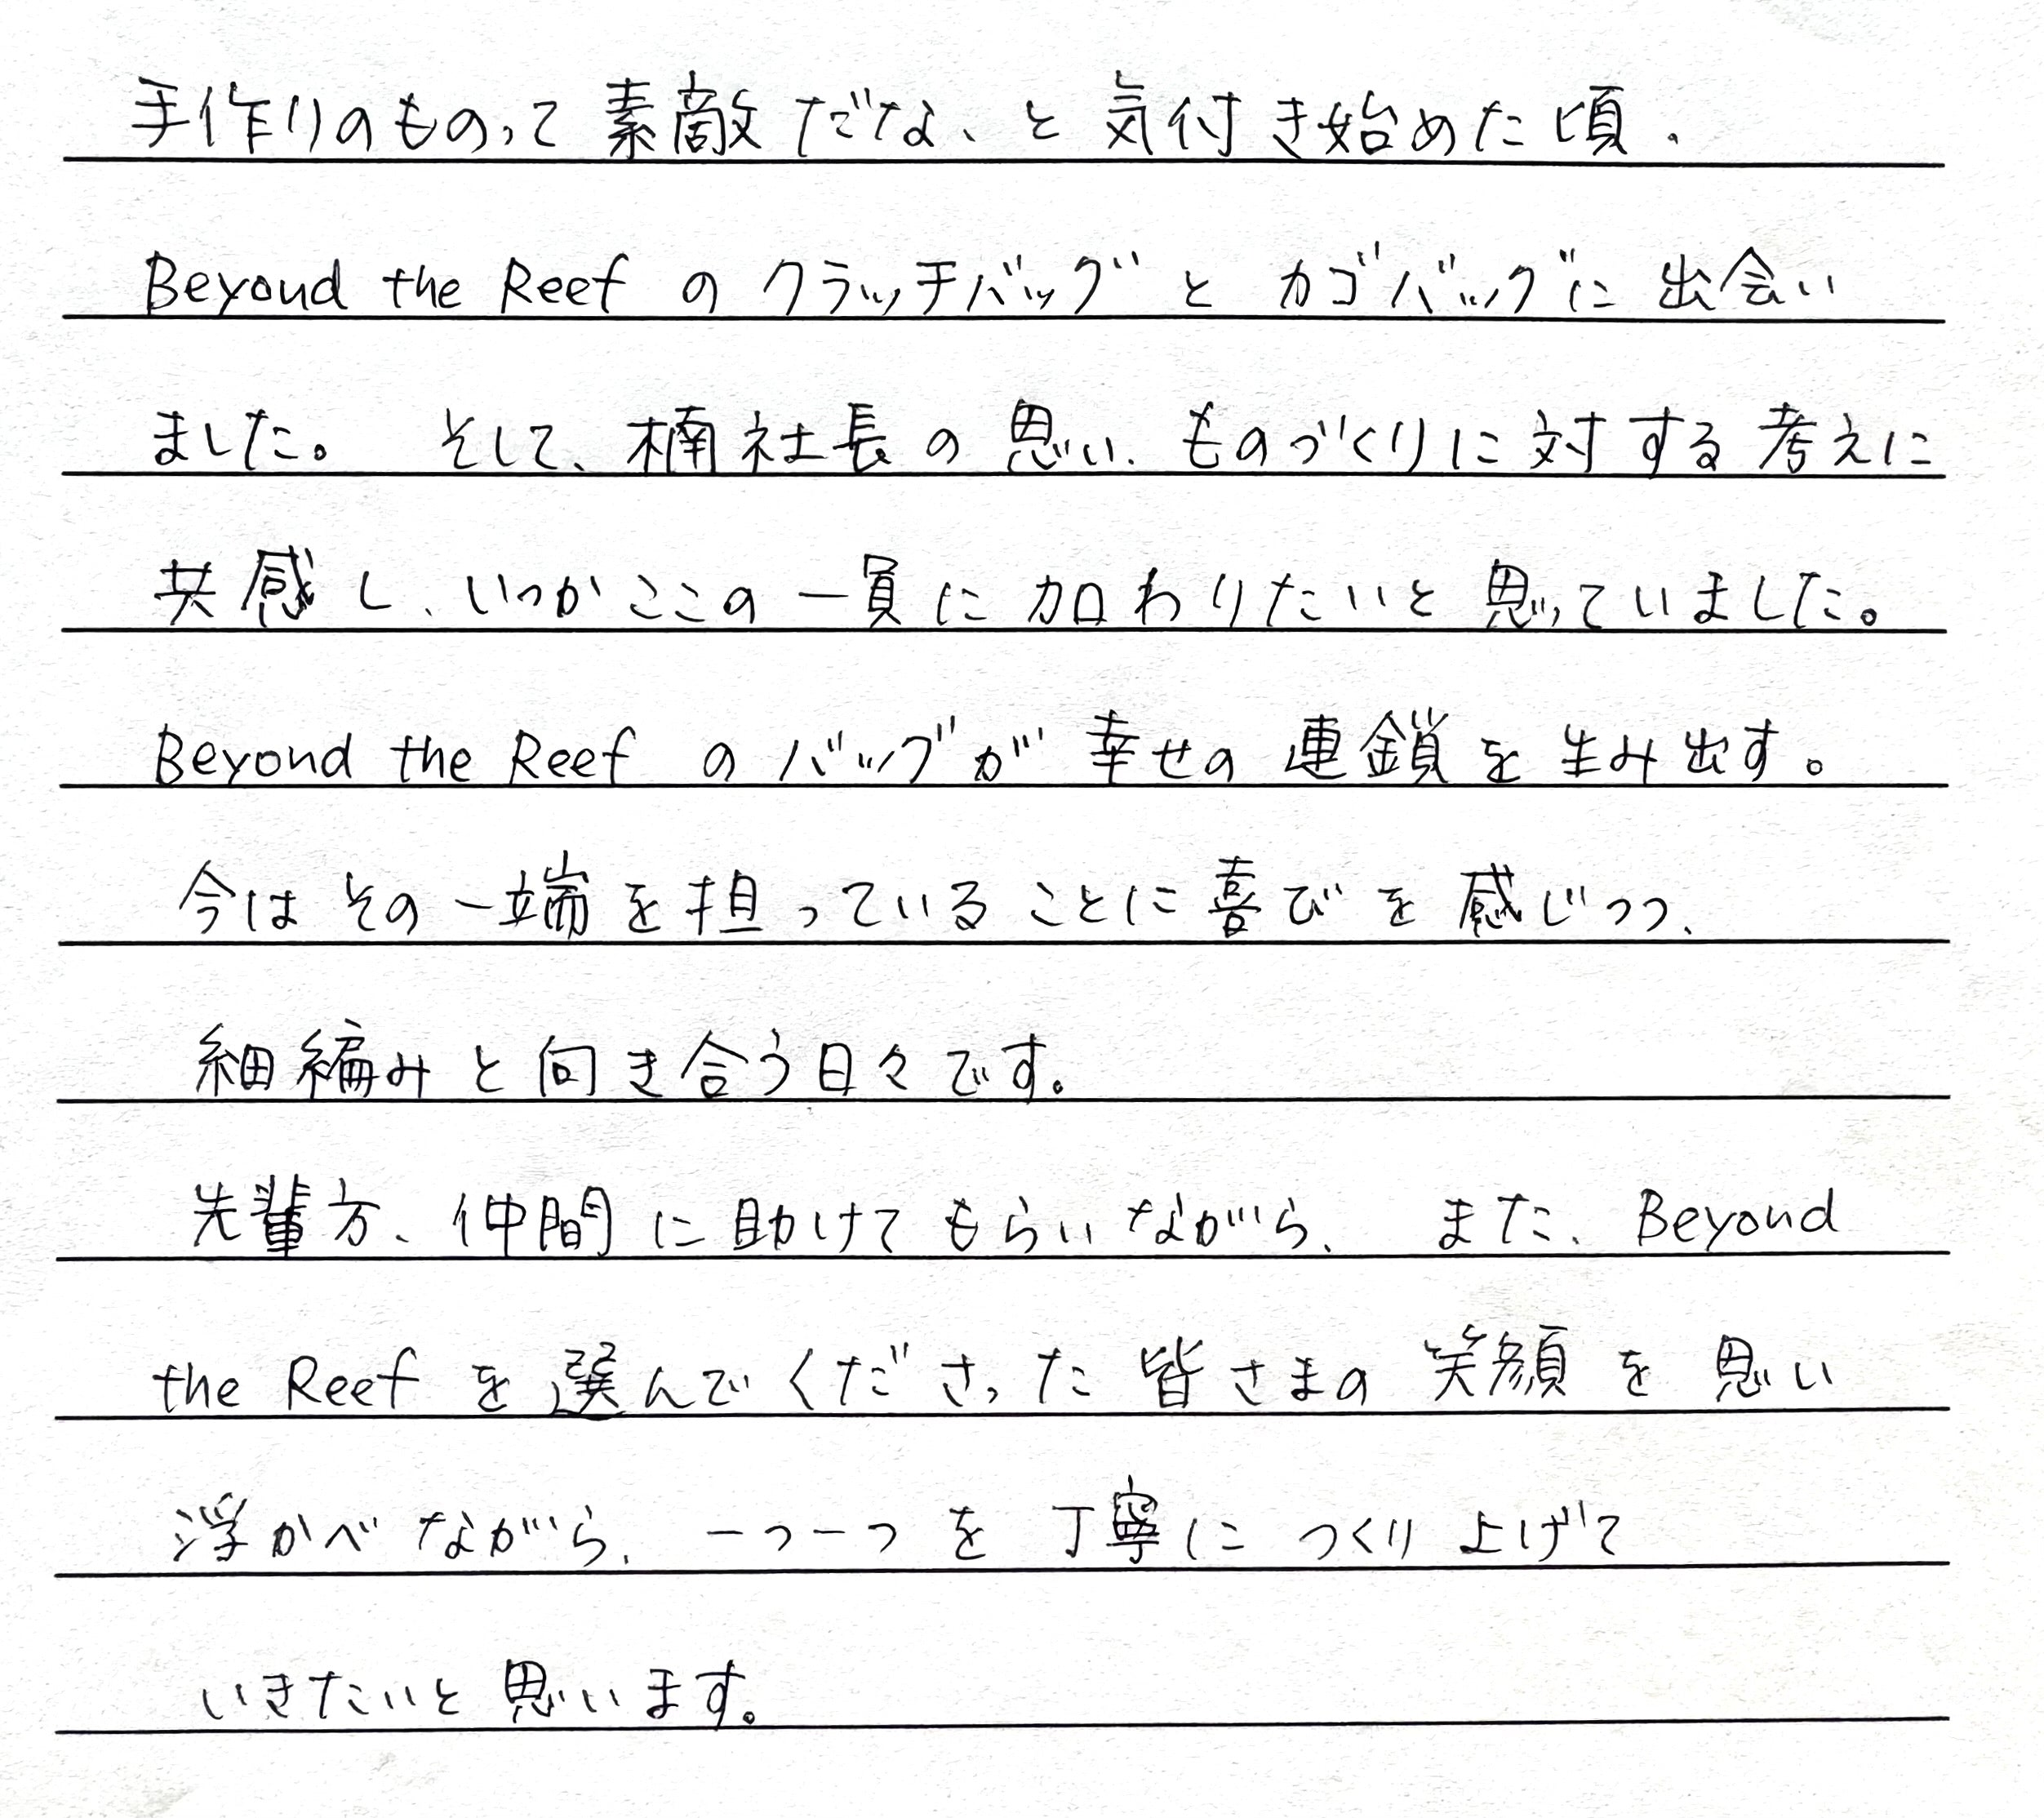 手作りのものって素敵だな、と気付き始めた頃、
Beyond the Reef の クラッチバッグ と カゴバッグに 出会い
ました。 そして、楠社長の思い、ものづくりに対する考えに
共感し、いつかここの一員に加わりたいと思っていました。
Beyond the Reef のバッグが幸せの連鎖を生み出す。
今はその一端を担っていることに喜びを感じつつ、
細編みと向き合う日々です。
先輩方、仲間に助けてもらいながら、 また、Beyond
the Reef を選んでくださった皆さまの笑顔を思い
浮かべながら、一つ一つを丁寧につくり上げて
いきたいと思います。